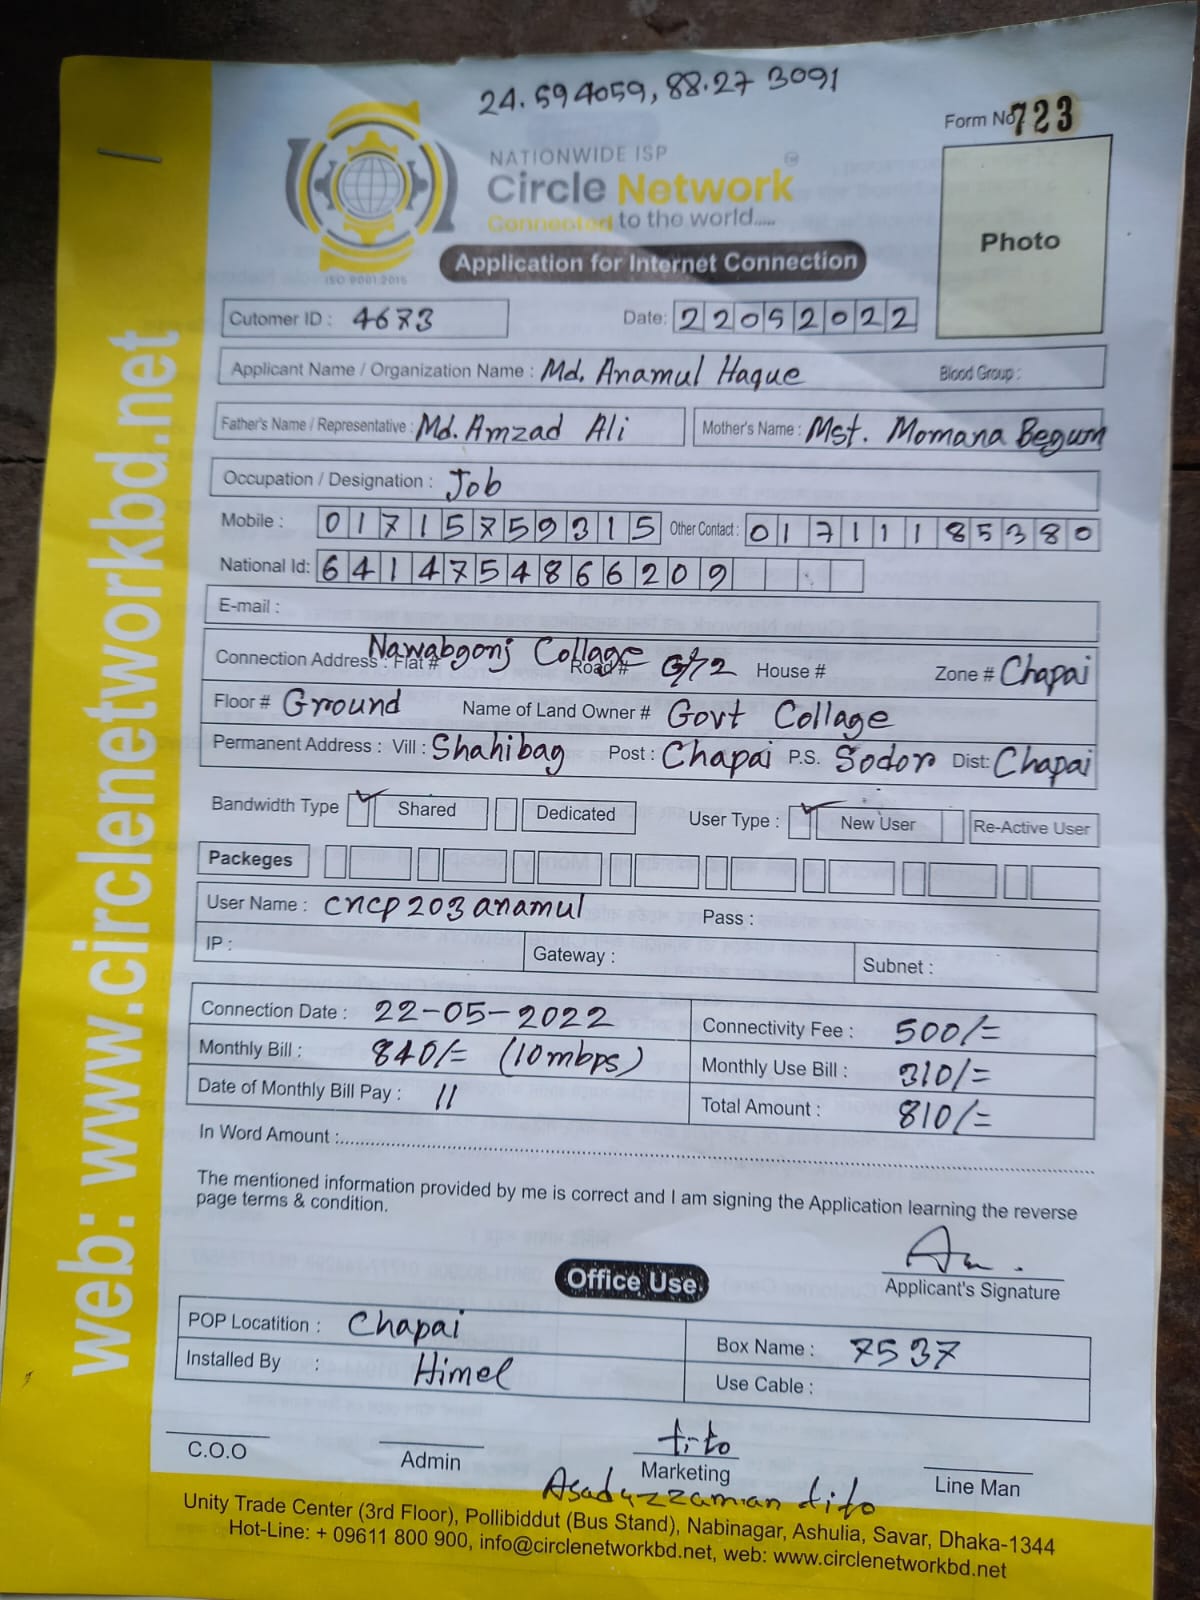 24.594059, 88.273091
Form No 723
NATIONWIDE ISP
Circle Network
Connected to the world.....
ISO 9001:2015
Application for Internet Connection
Photo
Cutomer ID : 4673
Date: 22052022
Applicant Name / Organization Name : Md. Anamul Haque Blood Group :
Father's Name / Representative : Md. Amzad Ali Mother's Name : Mst. Momana Begum
Occupation / Designation : Job
Mobile : 01715759315 Other Contact : 01711185380
National Id: 6414754866209
E-mail :
Connection Address : Flat # Nawabgonj Collage Road # House # Zone # Chapai
Floor # Ground Name of Land Owner # Govt Collage
Permanent Address : Vill : Shahibag Post : Chapai P.S. Sodor Dist: Chapai
Bandwidth Type Shared Dedicated User Type : New User Re-Active User
Packeges
User Name : cncp203anamul Pass :
IP : Gateway : Subnet :
Connection Date : 22-05-2022 Connectivity Fee : 500/=
Monthly Bill : 840/= (10mbps) Monthly Use Bill : 310/=
Date of Monthly Bill Pay : 11 Total Amount : 810/=
In Word Amount :
The mentioned information provided by me is correct and I am signing the Application learning the reverse
page terms & condition.
Applicant's Signature
Office Use.
POP Locatition : Chapai Box Name : 7537
Installed By : Himel Use Cable :
tito
C.O.O Admin Marketing Line Man
Asaduzzaman tito
Unity Trade Center (3rd Floor), Pollibiddut (Bus Stand), Nabinagar, Ashulia, Savar, Dhaka-1344
Hot-Line: + 09611 800 900, info@circlenetworkbd.net, web: www.circlenetworkbd.net
web: www.circlenetworkbd.net